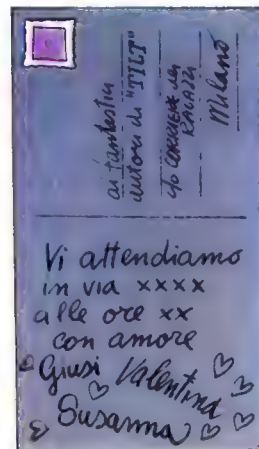 ai fantastici
autori di "TILT"
c/o CORRIERE dei
RAGAZZI
Milano
Vi attendiamo
in via xxxx
alle ore xx
con amore
Giusi Valentina
Susanna